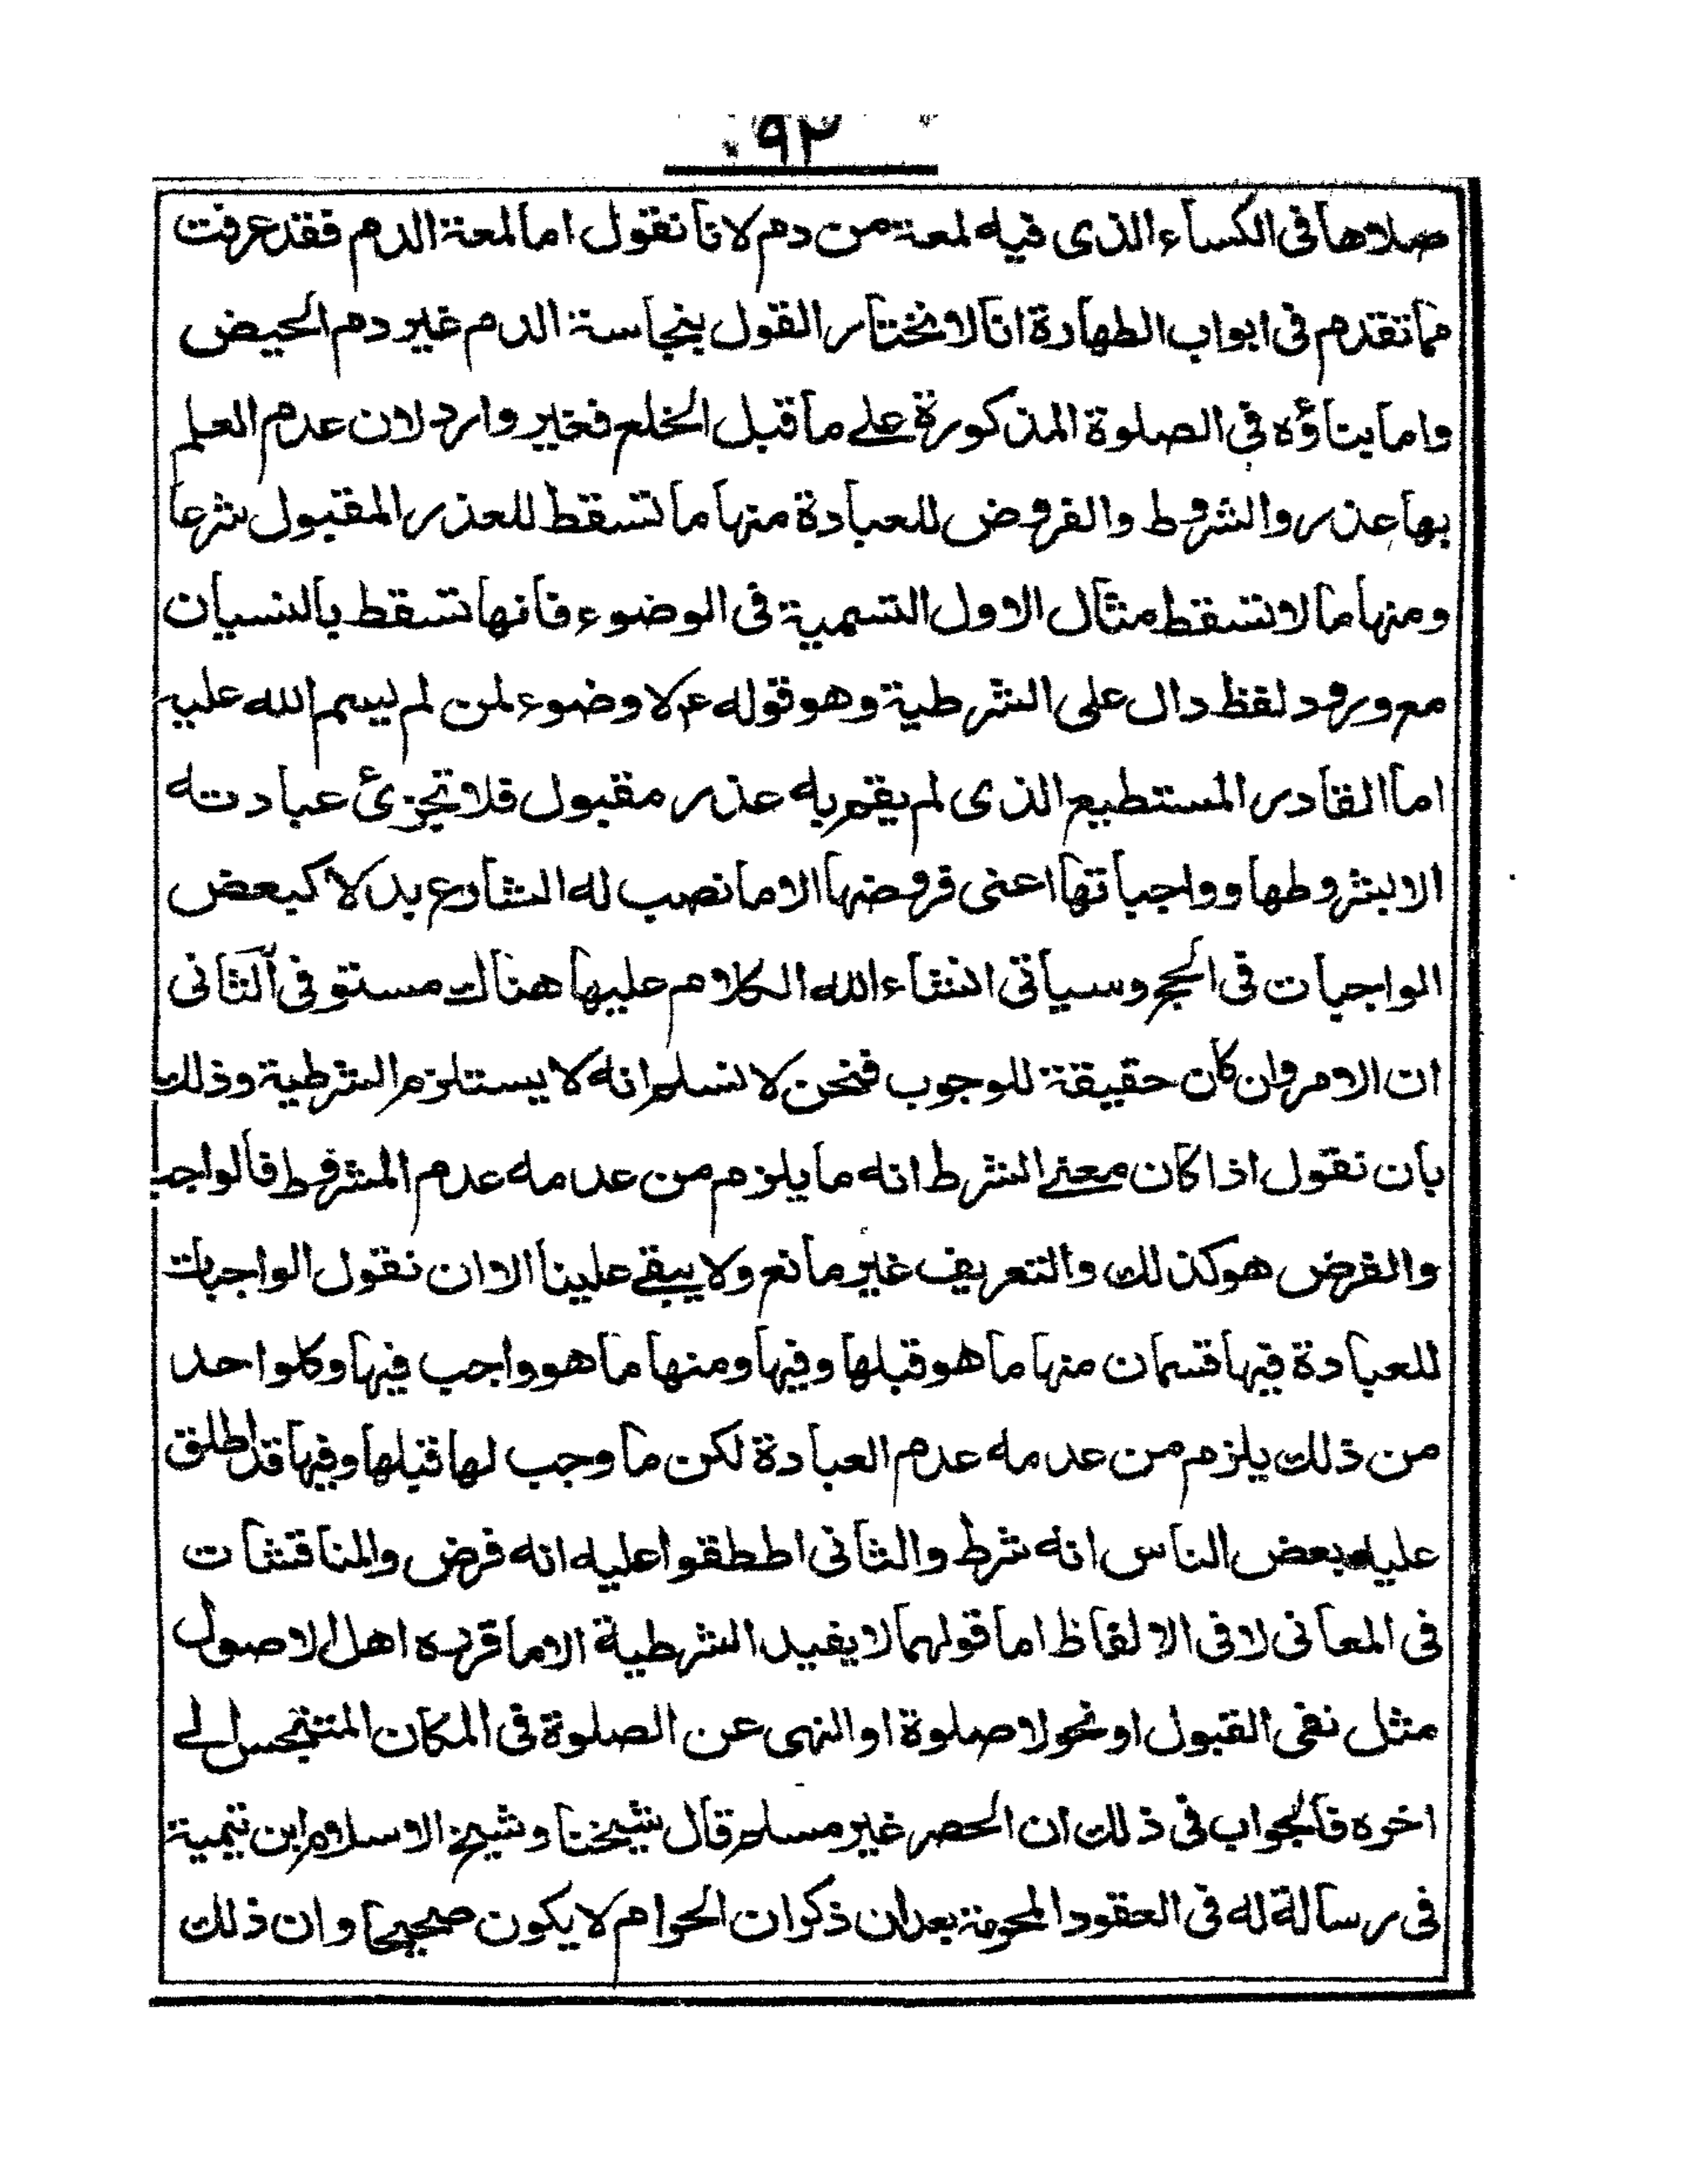 ٩٢
صلاها فى الكساء الذى فيه لمعة من دم لانا نقول اما لمعة الدم فقد عرفت
مما تقدم فى ابواب الطهارة انا لا نختار القول بنجاسة الدم غير دم الحيض
واما بناؤه فى الصلوة المذكورة على ما قبل الخلع فغير وارد لان عدم العلم
بها عذر والشروط والفروض للعبادة منها ما تسقط للعذر المقبول شرعا
ومنها ما لا تسقط مثال الاول التسمية فى الوضوء فانها تسقط بالنسيان
مع ورود لفظ دال على الشرطية وهو قوله عم لا وضوء لمن لم يسم الله عليه
اما القادر المستطيع الذى لم يقم به عذر مقبول فلا تجزئ عبادته
الا بشروطها وواجباتها اعنى فروضها الا ما نصب له الشارع بدلا كبعض
الواجبات فى الحج وسياتى انشاء الله الكلام عليها هناك مستوفى الثانى
ان الامر وان كان حقيقة للوجوب فنحن لا نسلم انه لا يستلزم الشرطية وذلك
بان نقول اذا كان معنى الشرط انه ما يلزم من عدمه عدم المشروط فالواجب
والفرض هو كذلك والتعريف غير مانع ولا يبقى علينا الا ان نقول الواجبات
للعبادة فيها قسمان منها ما هو قبلها وفيها ومنها ما هو واجب فيها وكلواحد
من ذلك يلزم من عدمه عدم العبادة لكن ما وجب لها قبلها وفيها قد اطلق
عليه بعض الناس انه شرط والثانى اططقوا عليه انه فرض والمناقشات
فى المعانى لا فى الالفاظ اما قولهما لا يفيد الشرطية الا ما قرره اهل الاصول
مثل نفى القبول او نحو لا صلوة او النهى عن الصلوة فى المكان المتنجس الى
اخره فالجواب فى ذلك ان الحصر غير مسلم قال شيخنا وشيخ الاسلام ابن تيمية
فى رسالة له فى العقود المحرمة بعد ان ذكر ان الحرام لا يكون صحيحا وان ذلك